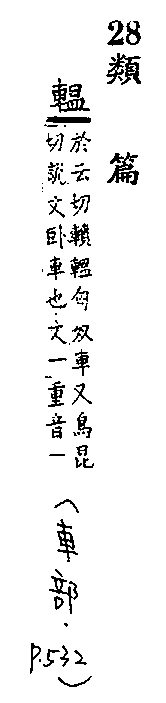 28類篇
轀
於云切轒轀匈奴車又烏昆
切說文卧車也文一重音一
(車部.
P.532)